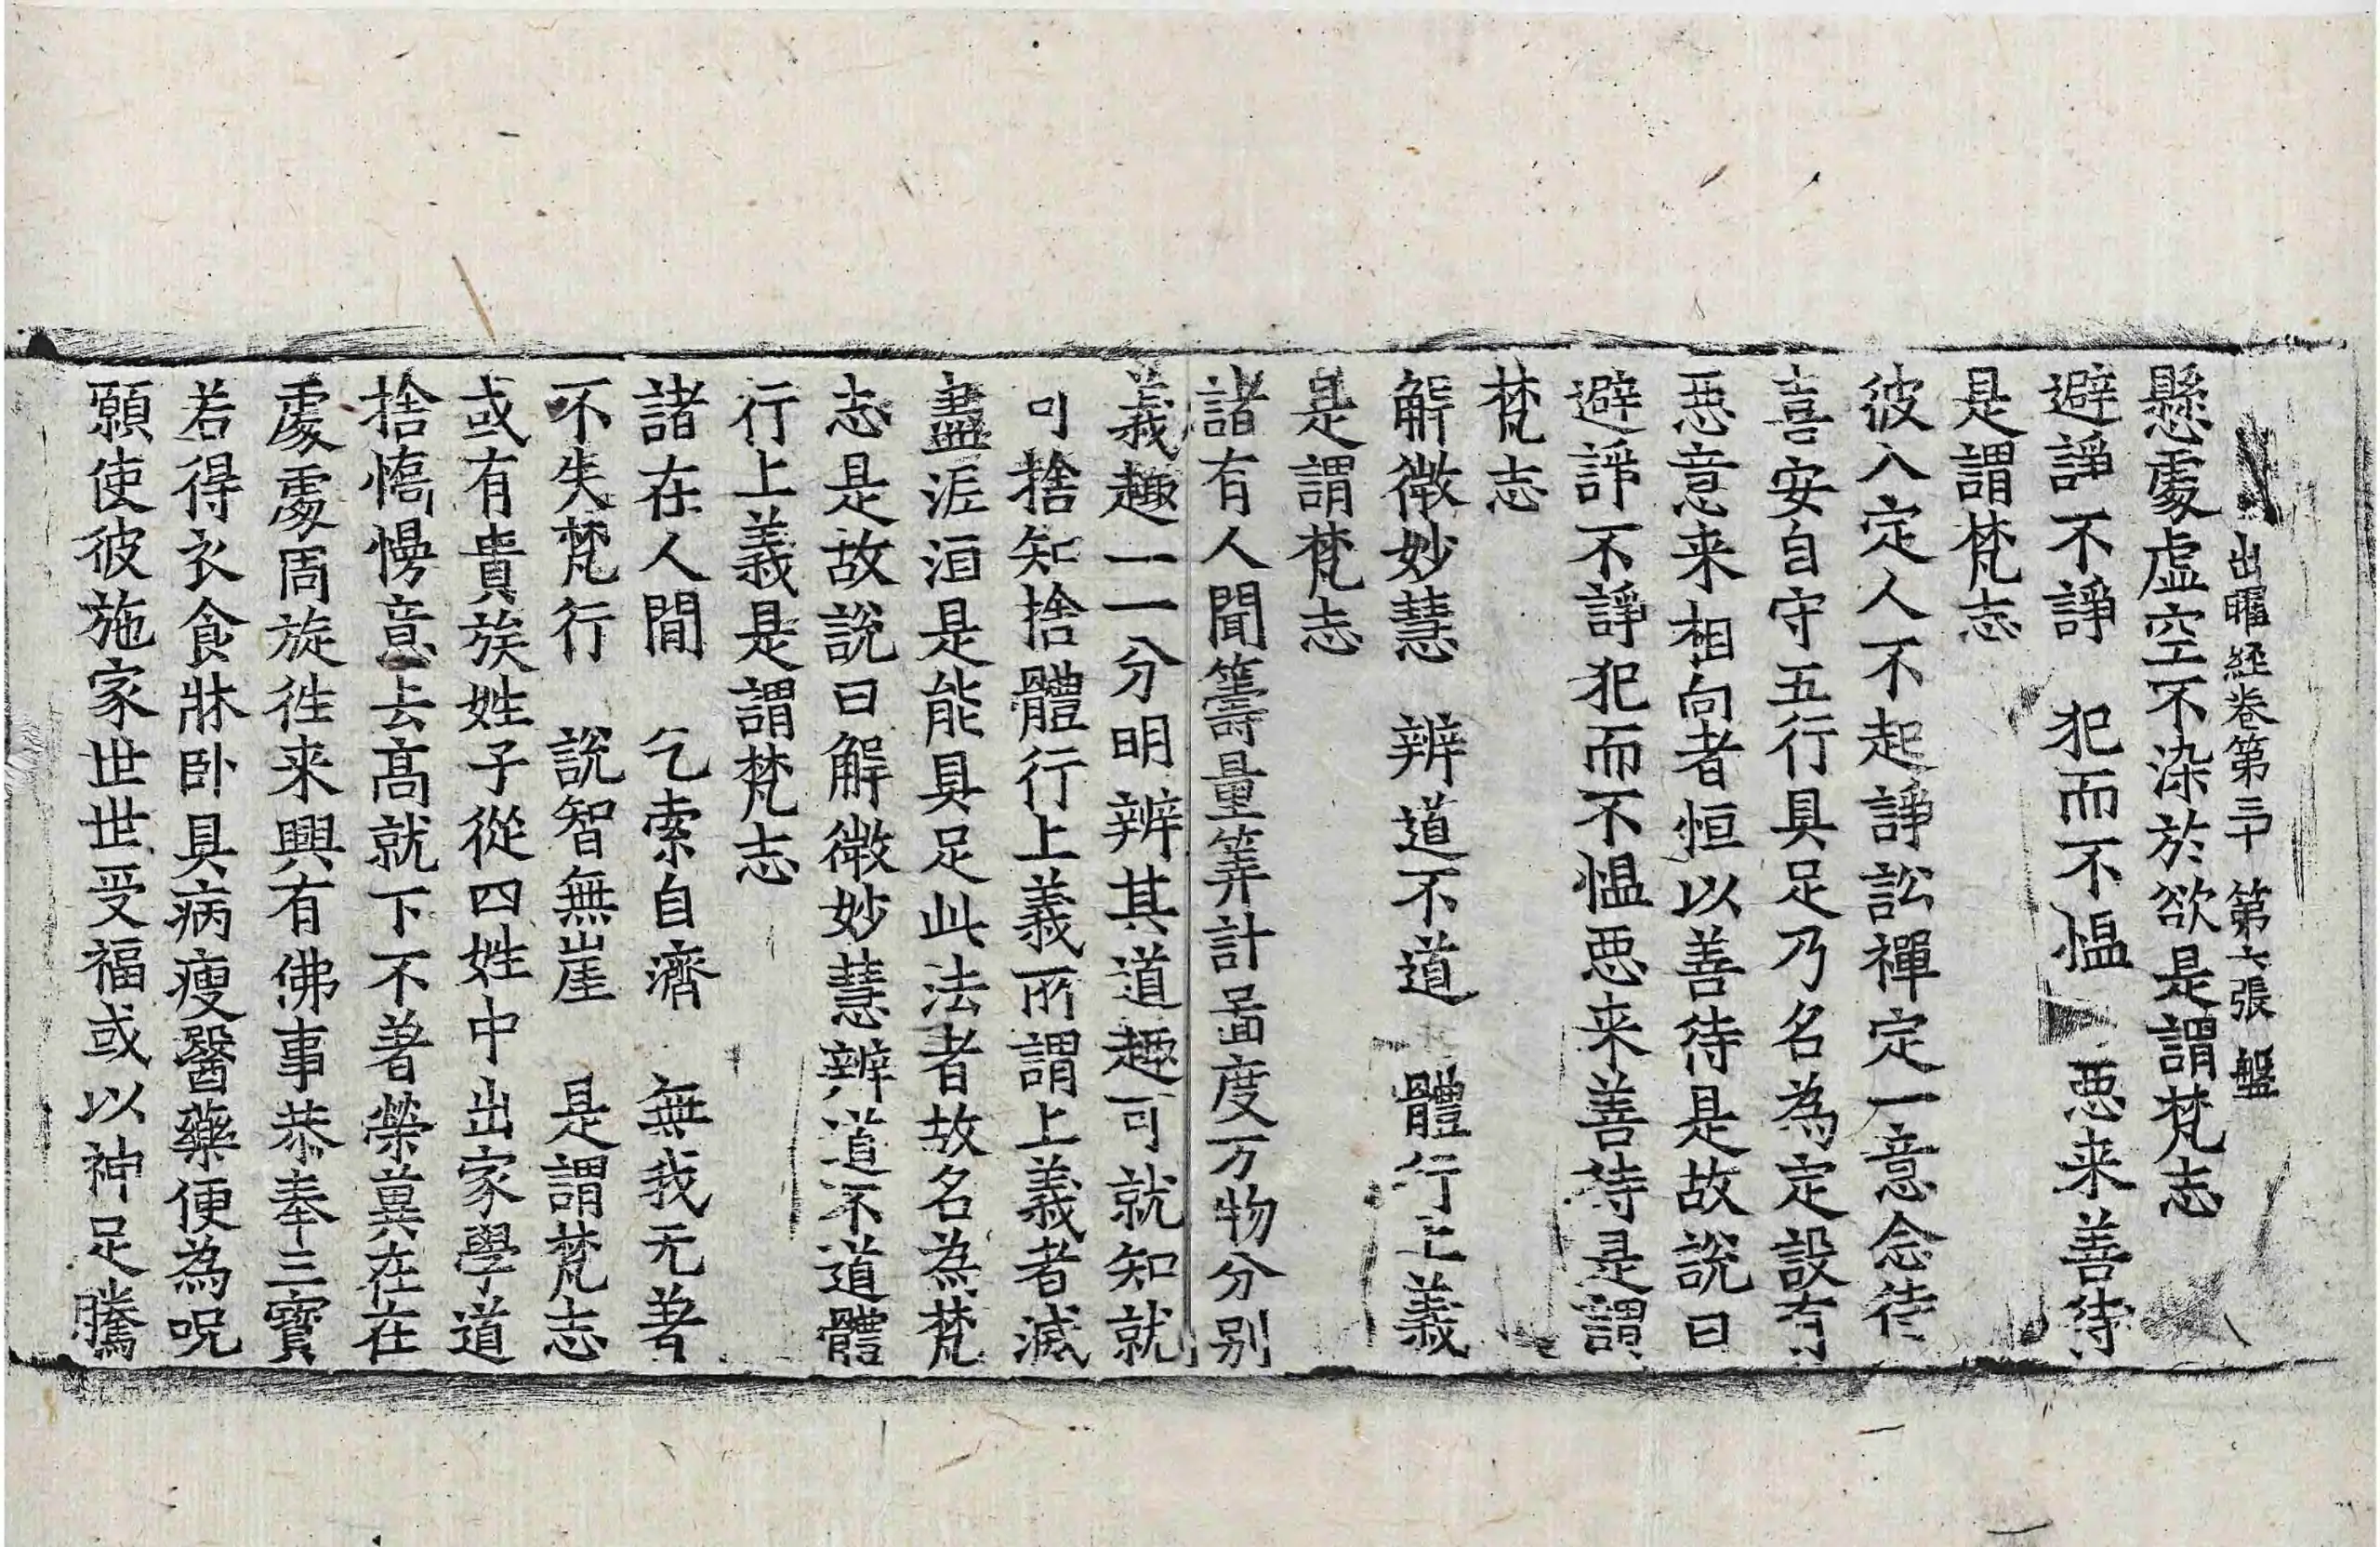 出曜経卷第三十 第六張 盤
懸處虛空不染於欲是謂梵志
避諍不諍 犯而不愠 惡来善待
是謂梵志
彼入定人不起諍訟禪定一意念待
喜安自守五行具足乃名為定設有
惡意来相向者恒以善待是故說曰
避諍不諍犯而不愠惡来善待是謂
梵志
解微妙慧 辨道不道 體行上義
是謂梵志
諸有人聞籌量筭計啚度万物分别
義趣一一分明辨其道趣可就知就
可捨知捨體行上義所謂上義者滅
盡泥洹是能具足此法者故名為梵
志是故說曰解微妙慧辨道不道體
行上義是謂梵志
諸在人間 乞索自濟 無我无著
不失梵行 說智無崖 是謂梵志
或有貴族姓子從四姓中出家學道
捨憍慢意去髙就下不著榮冀在在
處處周旋徃来興有佛事恭奉三寶
若得衣食牀卧具病瘦醫藥便為呪
願使彼施家世世受福或以神足騰